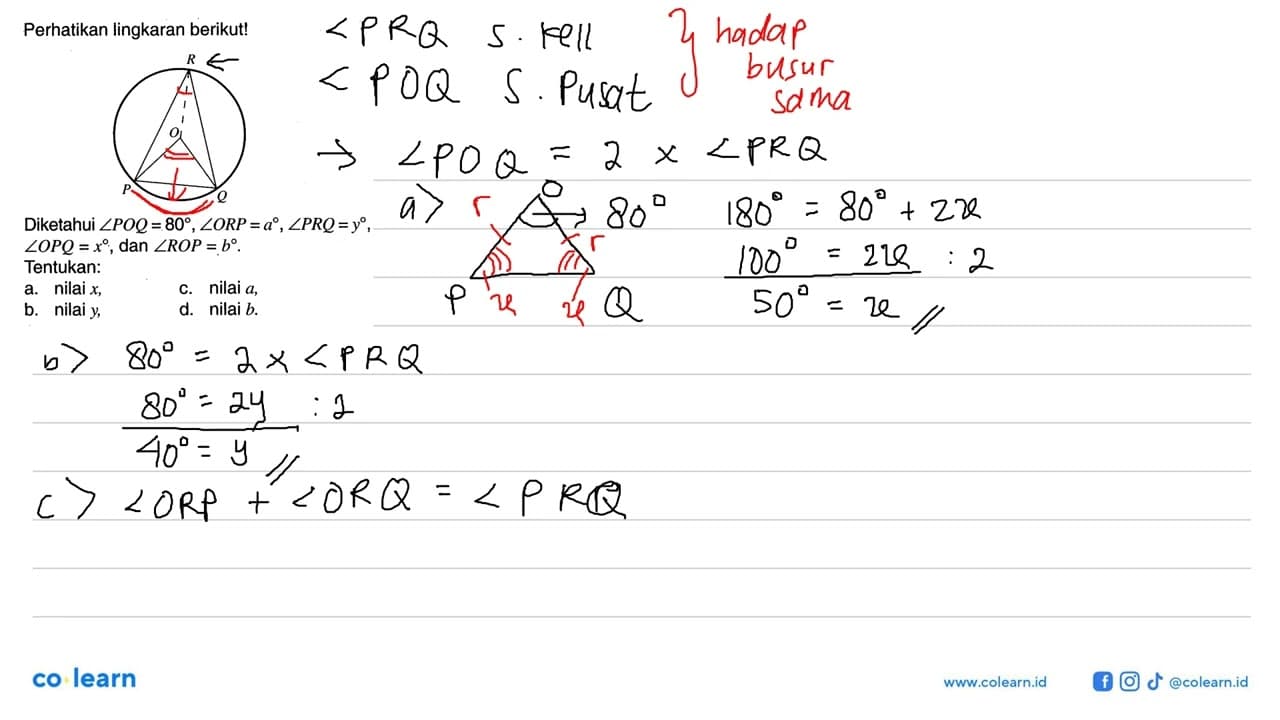 Perhatikan lingkaran berikut!
R ←
O
P
Q
Diketahui ∠POQ = 80°, ∠ORP = a°, ∠PRQ = y°,
∠OPQ = x°, dan ∠ROP = b°.
Tentukan:
a. nilai x, c. nilai a,
b. nilai y, d. nilai b.
<PRQ S. Kell
<POQ S. Pusat
} hadap
busur
sama
→ ∠POQ = 2 x ∠PRQ
a>
O
r
r
→ 80°
P x x Q
180° = 80° + 2x
100° = 2x : 2
50° = x //
b> 80° = 2 x <PRQ
80° = 2y : 2
40° = y //
c> <ORP + <ORQ = <PRQ
co learn
www.colearn.id
@colearn.id